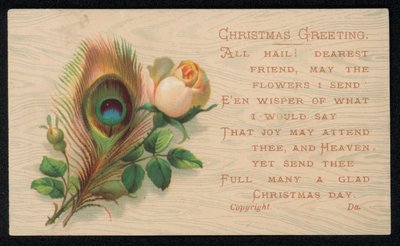 CHRISTMAS GREETING.
ALL HAIL! DEAREST
FRIEND, MAY THE
FLOWERS I SEND
E'EN WISPER OF WHAT
I WOULD SAY
THAT JOY MAY ATTEND
THEE, AND HEAVEN
YET SEND THEE
FULL MANY A GLAD
CHRISTMAS DAY.
Copyright Da.